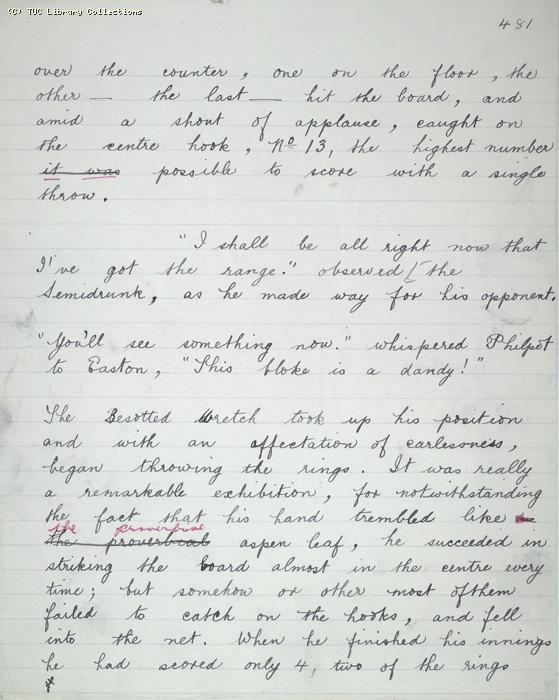 (C) TUC Library Collections
481
over the counter, one on the floor, the
other — the last — hit the board, and
amid a shout of applause, caught on
the centre hook, No 13, the highest number
it was possible to score with a single
throw.
"I shall be all right now that
I've got the range." observed [the
Semidrunk, as he made way for his opponent.
"You'll see something now." whispered Philpot
to Easton, "This bloke is a dandy!"
The Besotted Wretch took up his position
and with an affectation of carlessness,
began throwing the rings. It was really
a remarkable exhibition, for notwithstanding
the fact that his hand trembled like
the proverbial
the proverbial aspen leaf, he succeeded in
striking the board almost in the centre every
time; but somehow or other most of them
failed to catch on the hooks, and fell
into the net. When he finished his innings
he had scored only 4, two of the rings